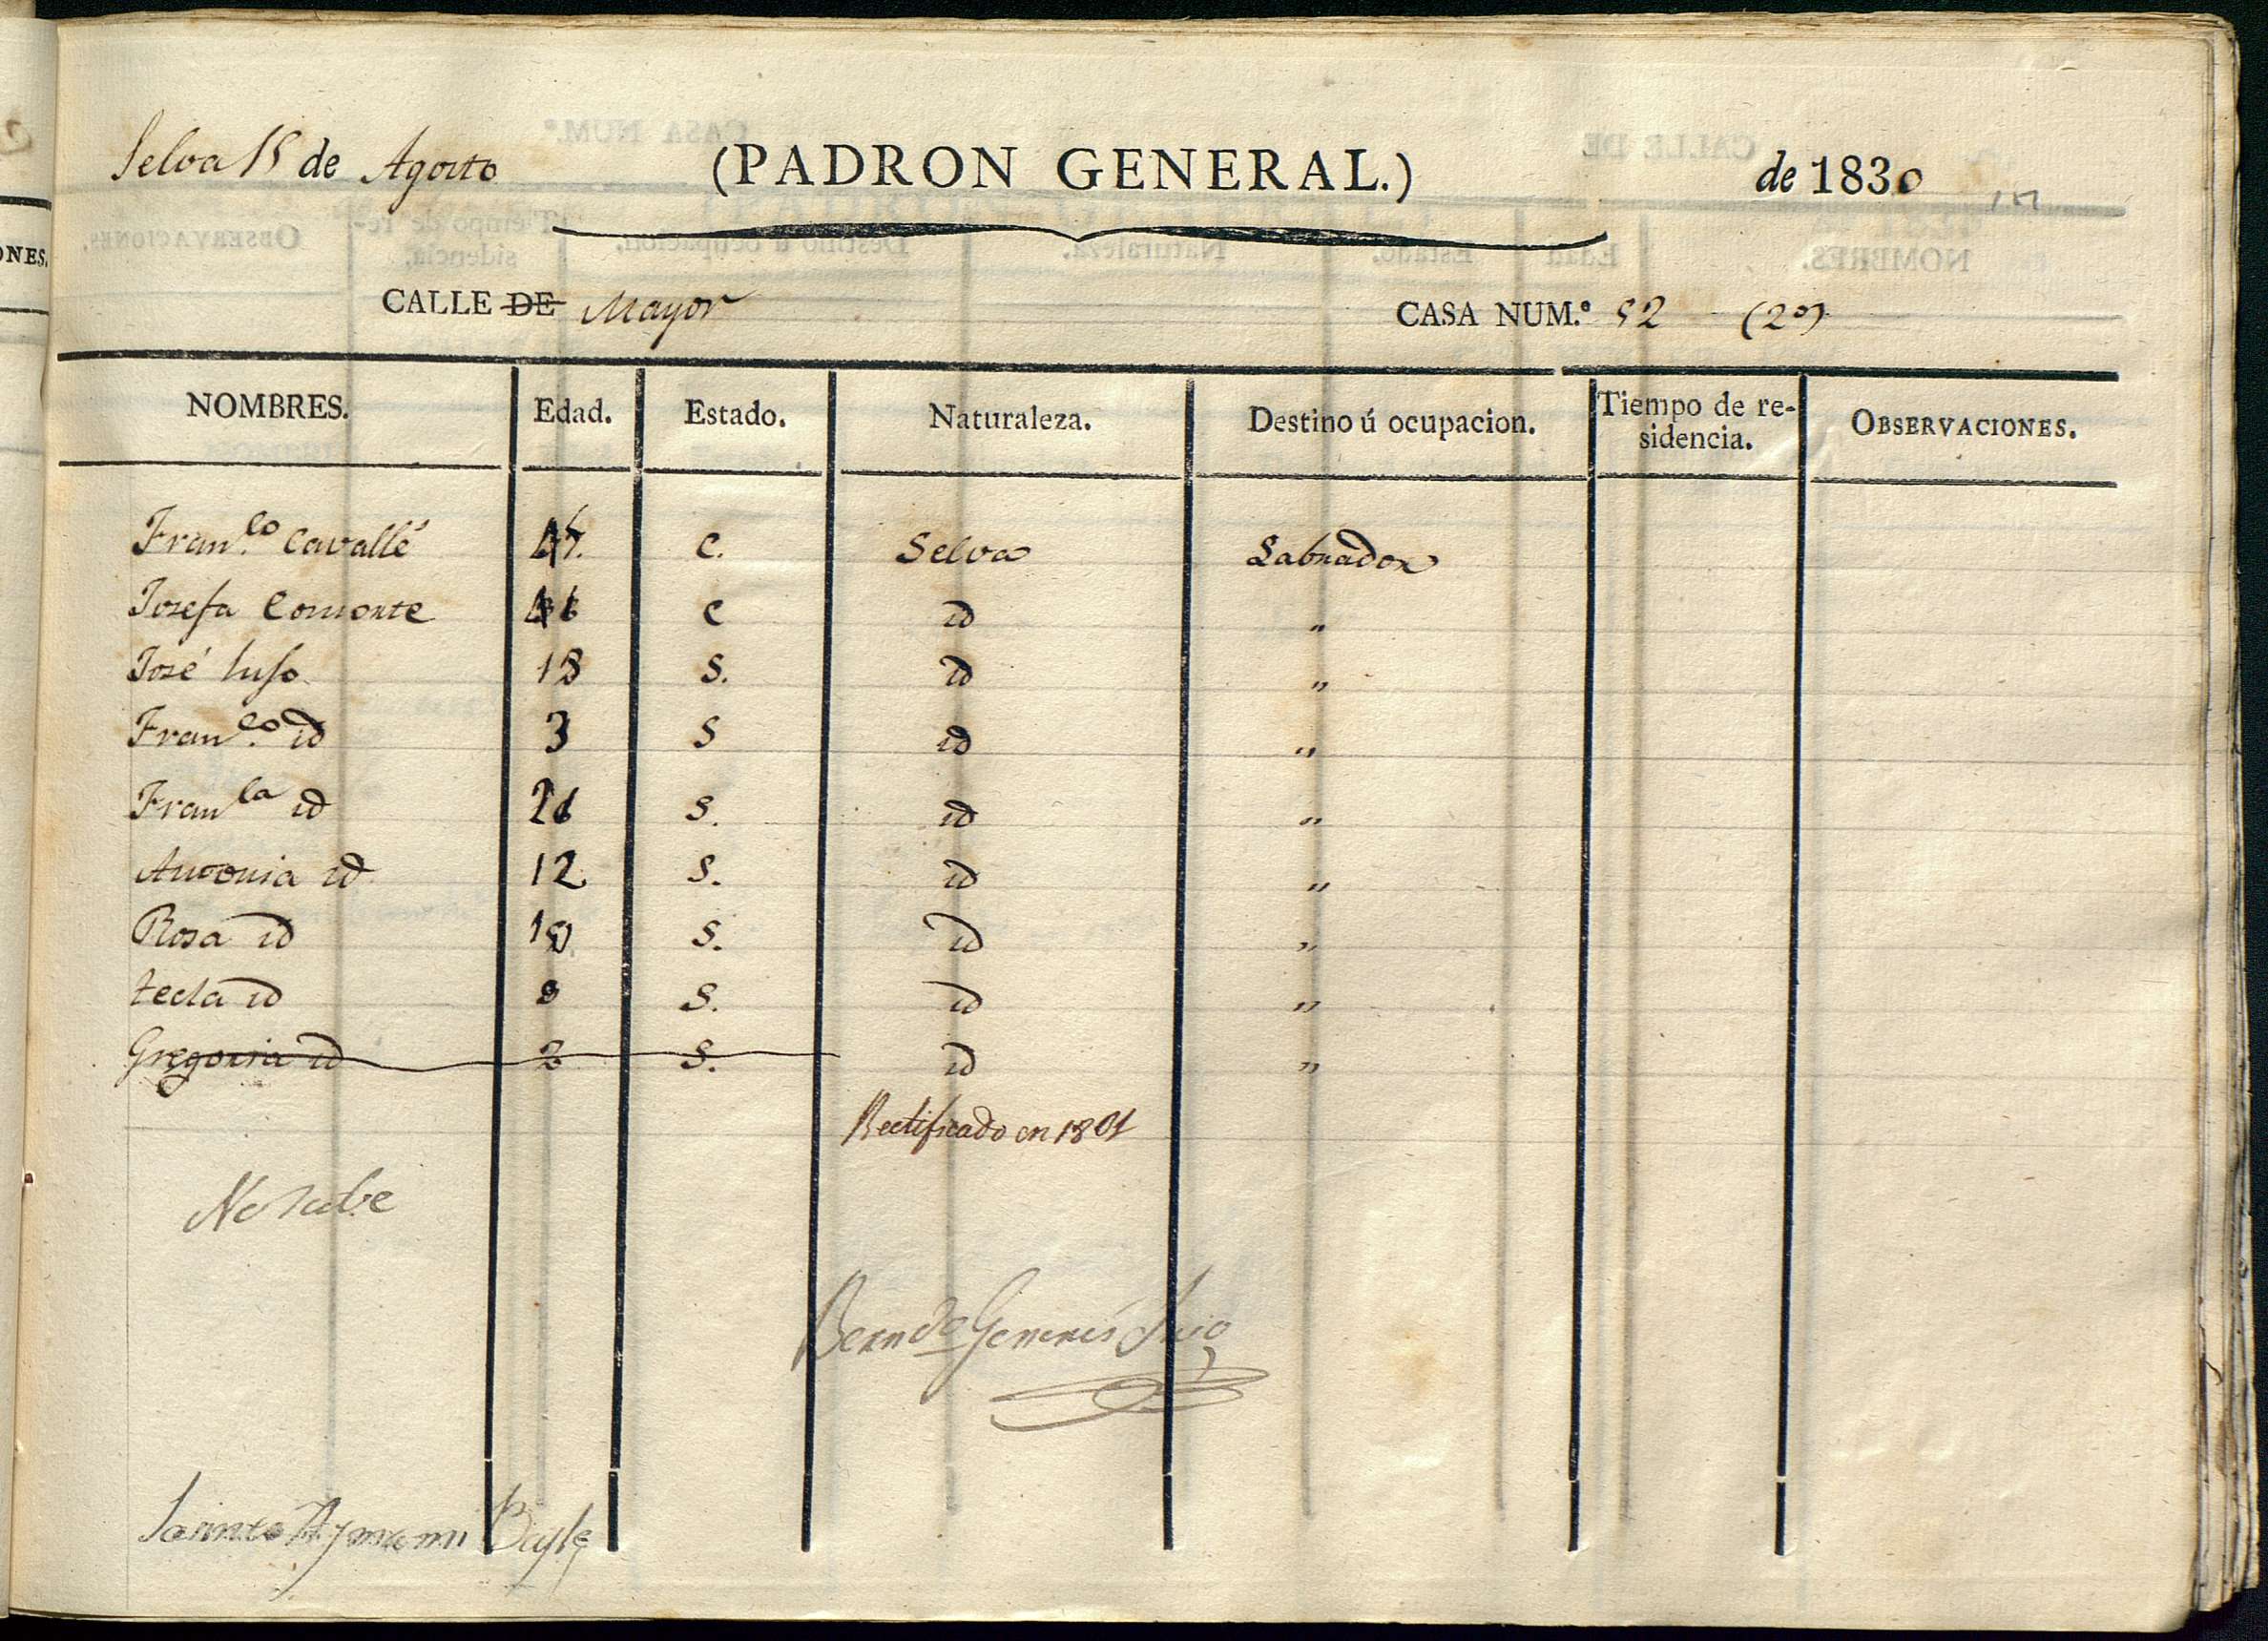 Selva 15 de Agosto (PADRON GENERAL.) de 1830
CALLE DE Mayor CASA NUM.º 52 (2º)
NOMBRES. Edad. Estado. Naturaleza. Destino ú ocupacion. Tiempo de residencia. OBSERVACIONES.
Fran.co Cavallé C. Selva Labrador
Josefa C id "
José hijo 18 S. id "
Fran.co id 3 S id "
Fran.ca id S. id "
Antonia id 12 S. id "
Rosa id S. id "
Tecla id S. id "
Gregoria id 2 S. id "
Rectificado en
No sabe
Bern.do
Aymami Bayle
ONES.